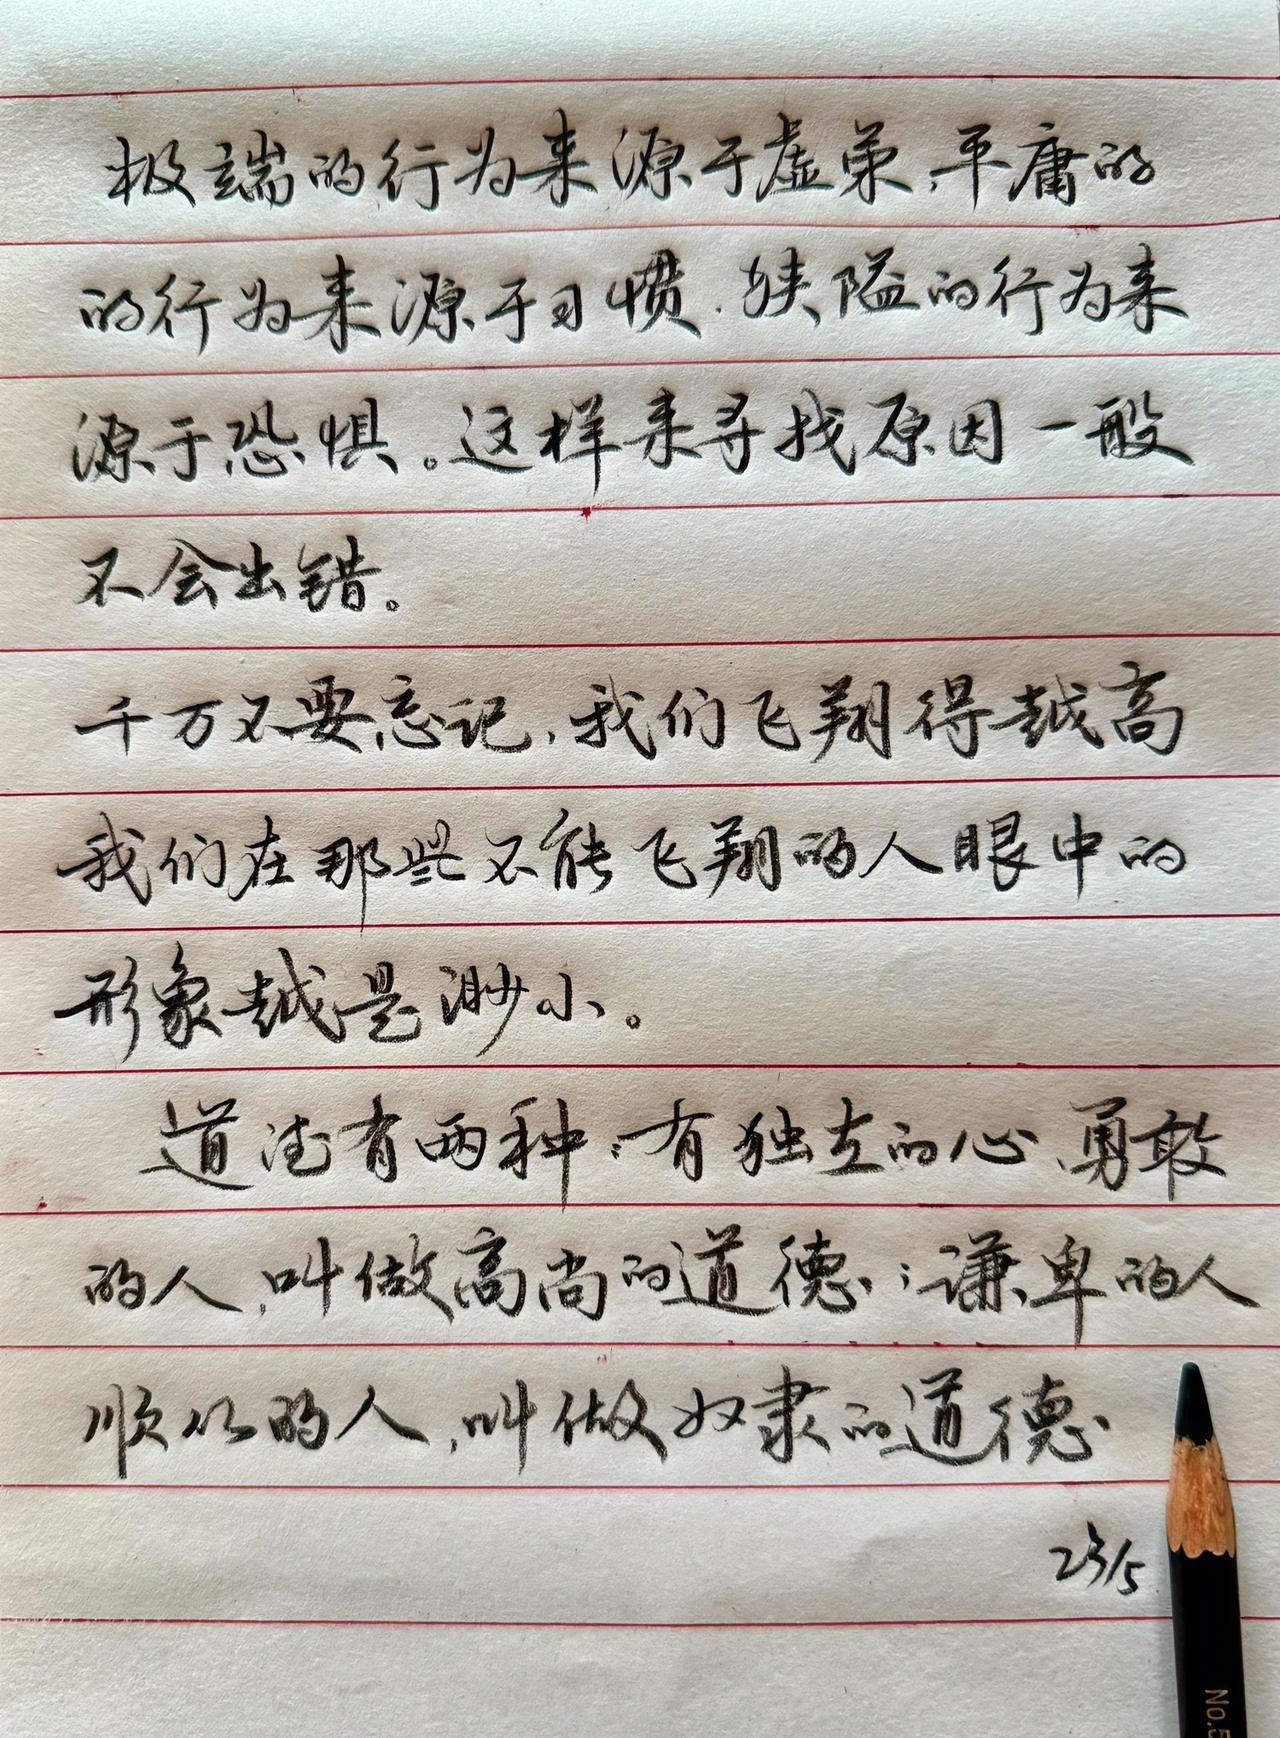 极端的行为来源于虚荣,平庸的
的行为来源于习惯.狭隘的行为来
源于恐惧。这样来寻找原因一般
不会出错。
千万不要忘记,我们飞翔得越高
我们在那些不能飞翔的人眼中的
形象越是渺小。
道德有两种:有独立的心、勇敢
的人,叫做高尚的道德;谦卑的人
顺从的人,叫做奴隶的道德.
23/5
No.5